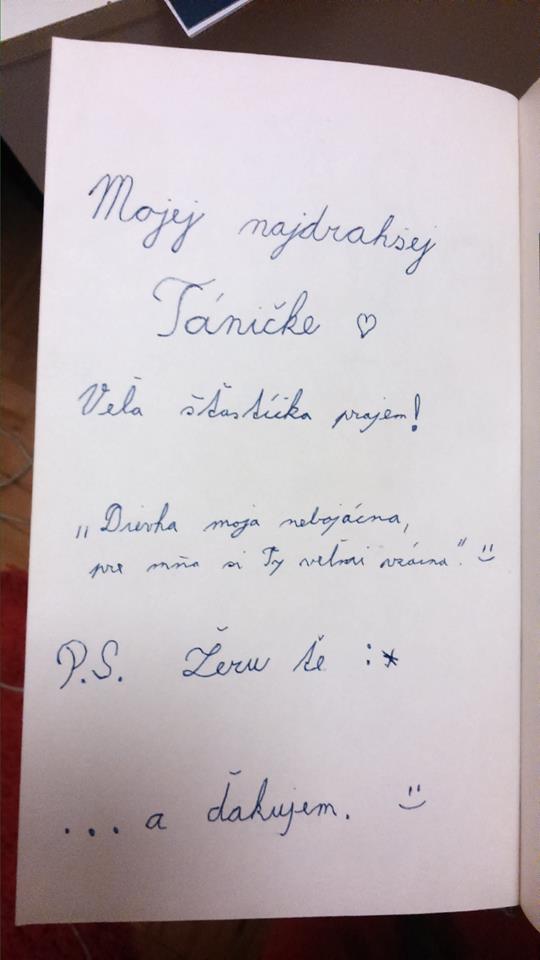 Mojej najdrahšej
Táničke ♡
Veľa šťastíčka prajem!
„Dievka moja nebojácna,
pre mňa si Ty veľmi vzácna“. :)
P.S. Žeru ťe :*
... a ďakujem. :)